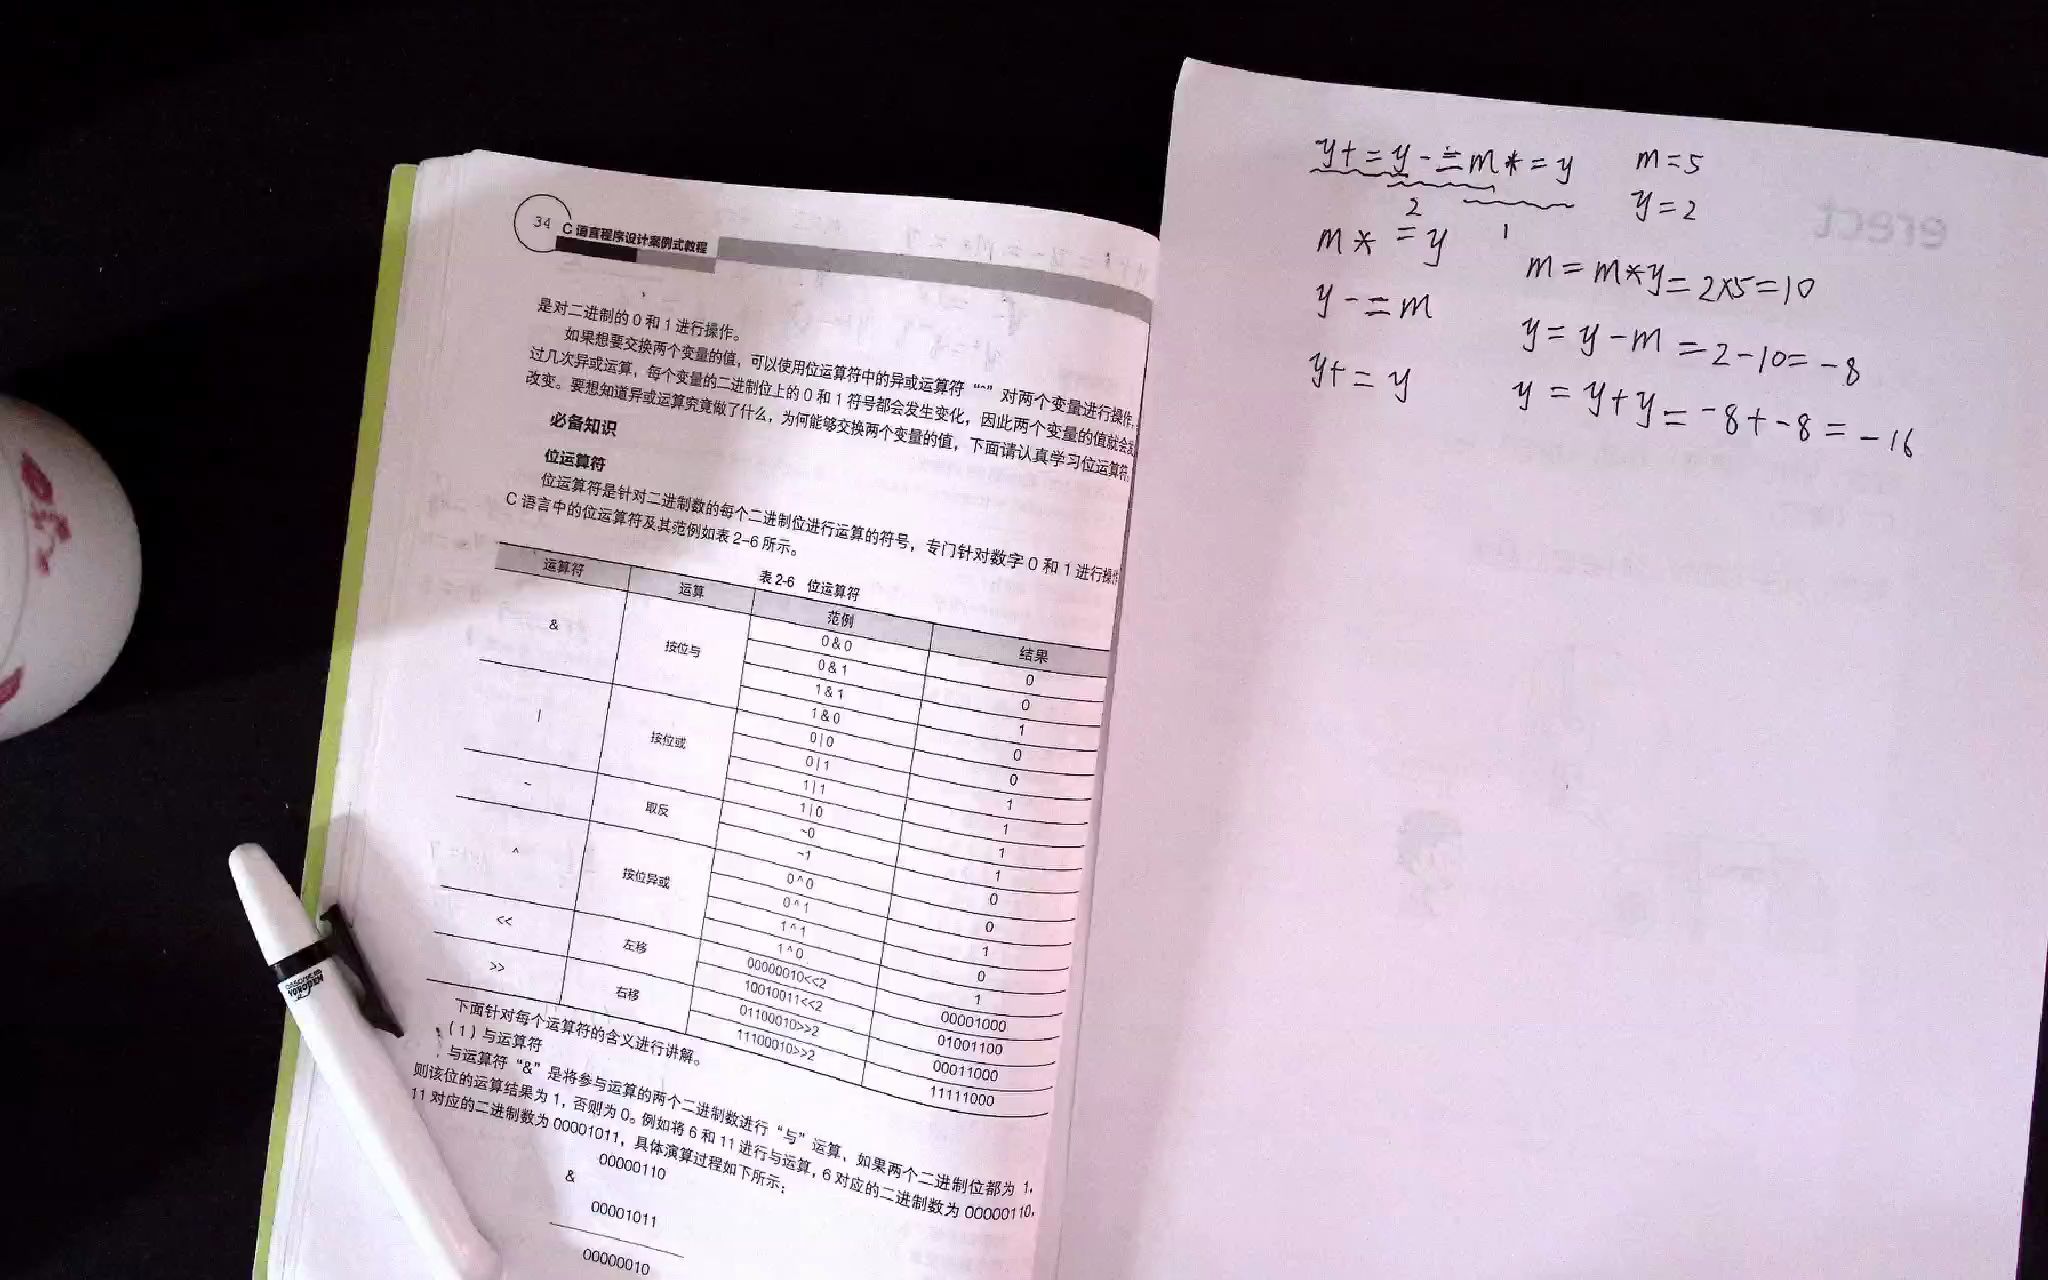 34
C语言程序设计案例式教程
是对二进制的0和1进行操作。
如果想要交换两个变量的值，可以使用位运算符中的异或运算符“^”对两个变量进行操作，
过几次异或运算，每个变量的二进制位上的0和1符号都会发生变化，因此两个变量的值就会发
改变。要想知道异或运算究竟做了什么，为何能够交换两个变量的值，下面请认真学习位运算符。
必备知识
位运算符
位运算符是针对二进制数的每个二进制位进行运算的符号，专门针对数字0和1进行操作
C语言中的位运算符及其范例如表2-6所示。
表2-6 位运算符
运算符 运算 范例 结果
& 按位与 0&0 0
0&1 0
1&1 1
1&0 0
| 按位或 0|0 0
0|1 1
1|1 1
1|0 1
~ 取反 ~0 1
~1 0
^ 按位异或 0^0 0
0^1 1
1^1 0
1^0 1
<< 左移 00000010<<2 00001000
10010011<<2 01001100
>> 右移 01100010>>2 00011000
11100010>>2 11111000
下面针对每个运算符的含义进行讲解。
（1）与运算符
与运算符“&”是将参与运算的两个二进制数进行“与”运算，如果两个二进制位都为1，
则该位的运算结果为1，否则为0。例如将6和11进行与运算，6对应的二进制数为00000110，
11对应的二进制数为00001011，具体演算过程如下所示：
00000110
&
00001011
00000010
y+=y-=m*=y m=5
y=2
2
1
m*=y m=m*y=2×5=10
y-=m y=y-m=2-10=-8
y+=y y=y+y=-8+-8=-16
erect